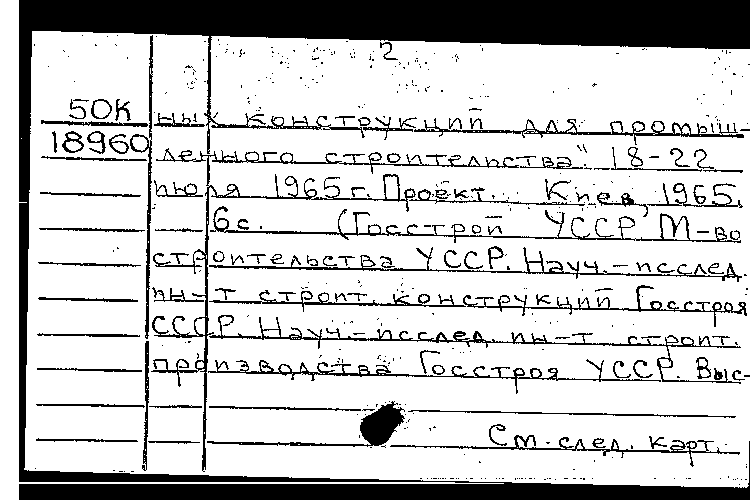 2
50К ных конструкций для промыш-
18960 ленного строительства". 18-22
июля 1965 г. Проект. Киев, 1965.
6 с. (Госстрой УССР. М-во
строительства УССР. Науч.-исслед.
ин-т строит. конструкций Госстроя
СССР. Науч.-исслед. ин-т строит.
производства Госстроя УССР. Выс-
См. след. карт.